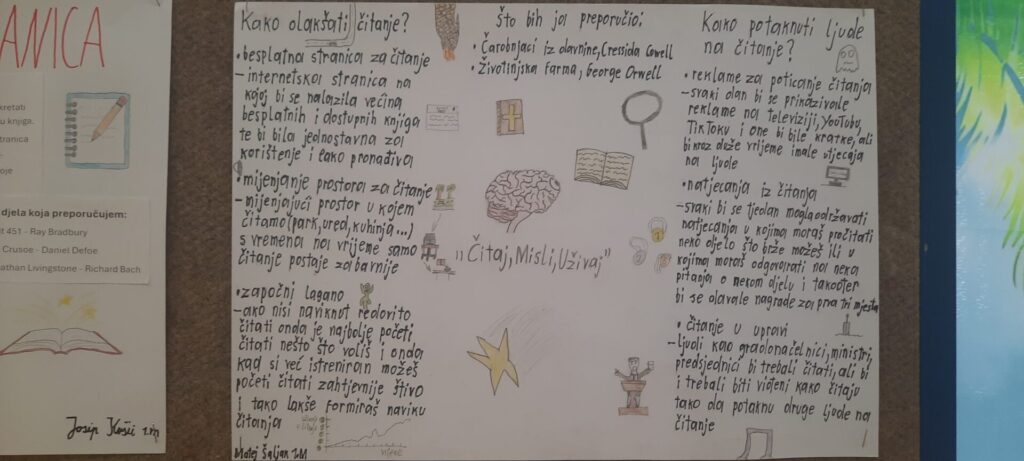 ANICA
kretati
u knjiga.
tranica
-
oje
djela koja preporučujem:
it 451 - Ray Bradbury
Crusoe - Daniel Defoe
nathan Livingstone - Richard Bach
Josip
Kako olakšati čitanje?
• besplatna stranica za čitanje
- internetska stranica na
kojoj bi se nalazila većina
besplatnih i dostupnih knjiga
te bi bila jednostavna za
korištenje i lako pronađiva
• mijenjanje prostora za čitanje
- mijenjajući prostor u kojem
čitamo (park, ured, kuhinja ...)
s vremena na vrijeme samo
čitanje postaje zabavnije
• započni lagano
- ako nisi naviknut redovito
čitati onda je najbolje početi
čitati nešto što voliš i onda
kad si već istreniran možeš
početi čitati zahtjevnije štivo
i tako lakše formiraš naviku
čitanja
Matej Šaljan
Što bih ja preporučio:
• Čarobnjaci iz davnine, Cressida Cowell
• Životinjska farma, George Orwell
,,Čitaj, Misli, Uživaj"
Kako potaknuti ljude
na čitanje?
• reklame za poticanje čitanja
- svaki dan bi se prikazivale
reklame na televiziji, YouTubu,
TikToku i one bi bile kratke, ali
bi kroz duže vrijeme imale utjecaja
na ljude
• natjecanja iz čitanja
- svaki bi se tjedan mogla održavati
natjecanja u kojima moraš pročitati
neko djelo što brže možeš ili u
kojima moraš odgovarati na neka
pitanja o nekom djelu i također
bi se davale nagrade za prva tri mjesta
• čitanje u upravi
- ljudi kao gradonačelnici, ministri,
predsjednici bi trebali čitati, ali bi
i trebali biti viđeni kako čitaju
tako da potaknu druge ljude na
čitanje